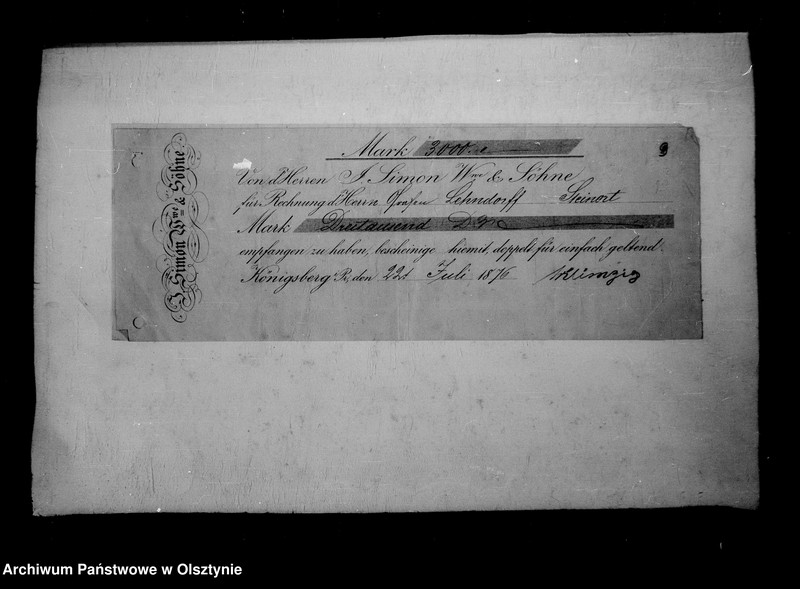 Mark 3000.
9
J. Simon Wwe & Söhne
Von d Herren J. Simon Wwe & Söhne
für Rechnung d Herrn Grafen Lehndorff Steinort
Mark Dreitausend
empfangen zu haben, bescheinige hiemit, doppelt für einfach geltend.
Königsberg Pr., den 22t Juli 1876
Archiwum Państwowe w Olsztynie